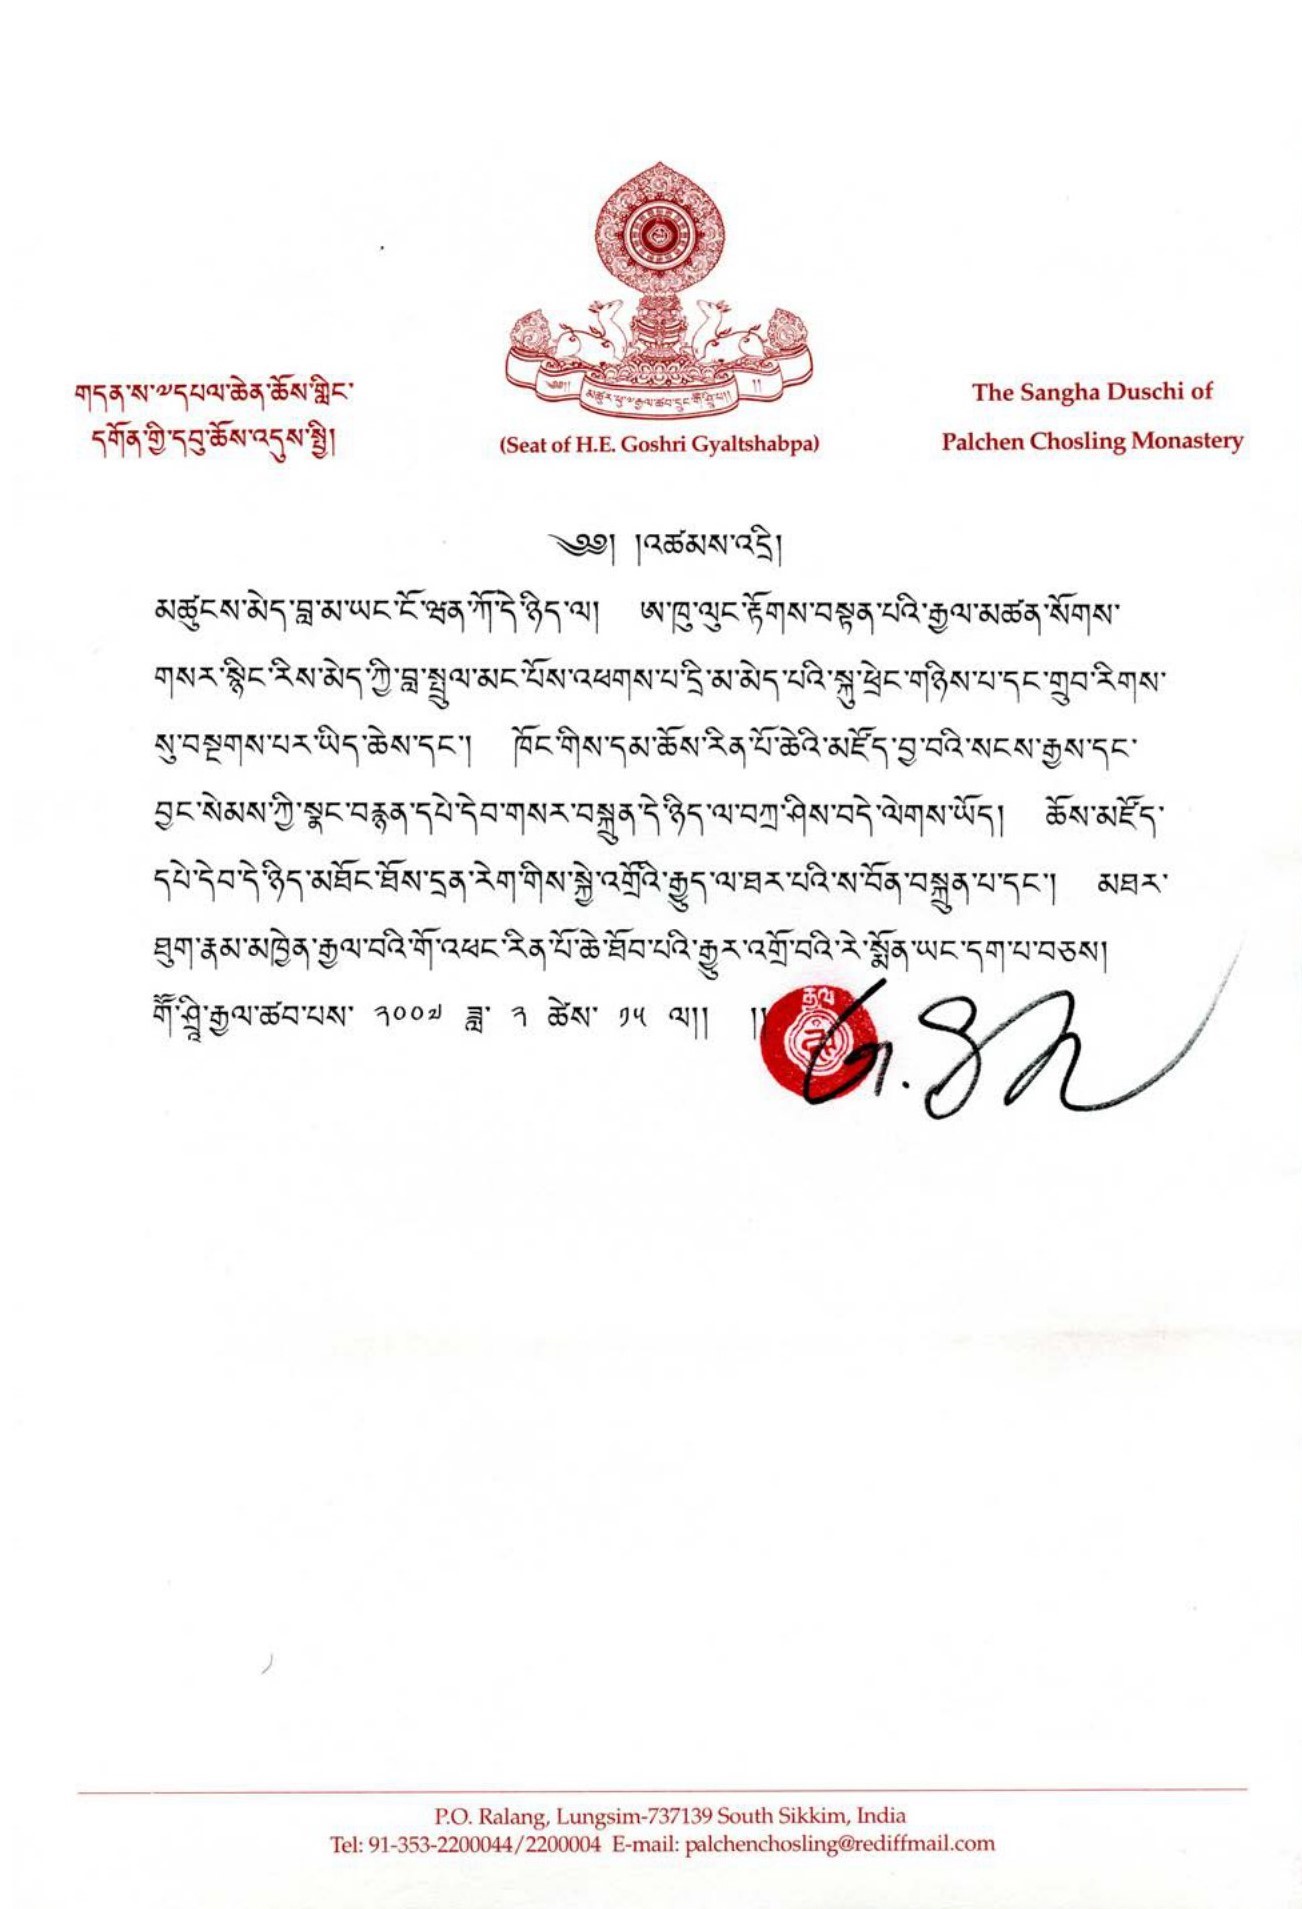 མཚུར་ཕུ་༧རྒྱལ་ཚབ་དྲུང་གོ་ཤྲཱི་པ།།
གདན་ས་༧དཔལ་ཆེན་ཆོས་གླིང་
དགོན་གྱི་དབུ་ཆོས་འདུས་སྤྱི།
(Seat of H.E. Goshri Gyaltshabpa)
The Sangha Duschi of
Palchen Chosling Monastery
༄༅། །འཚམས་འདྲི།
མཚུངས་མེད་བླ་མ་ཡང་ངོ་ཝན་ཀོ་དེ་ཉིད་ལ། ཨ་ཁུ་ལུང་རྟོགས་བསྟན་པའི་རྒྱལ་མཚན་སོགས་
གསར་སྙིང་རིས་མེད་ཀྱི་བླ་སྤྲུལ་མང་པོས་འཕགས་པ་དྲི་མ་མེད་པའི་སྐུ་ཕྲེང་གཉིས་པ་དང་གྲུབ་རིགས་
སུ་བསྔགས་པར་ཡིད་ཆེས་དང་། ཁོང་གིས་དམ་ཆོས་རིན་པོ་ཆེའི་མཛོད་བྱ་བའི་སངས་རྒྱས་དང་
བྱང་སེམས་ཀྱི་སྣང་བརྙན་དཔེ་དེབ་གསར་བསྐྲུན་དེ་ཉིད་ལ་བཀྲ་ཤིས་བདེ་ལེགས་ཡོད། ཆོས་མཛོད་
དཔེ་དེབ་དེ་ཉིད་མཐོང་ཐོས་དྲན་རེག་གིས་སྐྱེ་འགྲོའི་རྒྱུད་ལ་ཐར་པའི་ས་བོན་བསྐྲུན་པ་དང་། མཐར་
ཐུག་རྣམ་མཁྱེན་རྒྱལ་བའི་གོ་འཕང་རིན་པོ་ཆེ་ཐོབ་པའི་རྒྱུར་འགྲོ་བའི་རེ་སྨོན་ཡང་དག་པ་བཅས།
གོ་ཤྲཱི་རྒྱལ་ཚབ་པས་ ༢༠༠༧ ཟླ་ ༢ ཚེས་ ༡༥ ལ།། །།
རྒྱལ
P.O. Ralang, Lungsim-737139 South Sikkim, India
Tel: 91-353-2200044/2200004 E-mail: palchenchosling@rediffmail.com